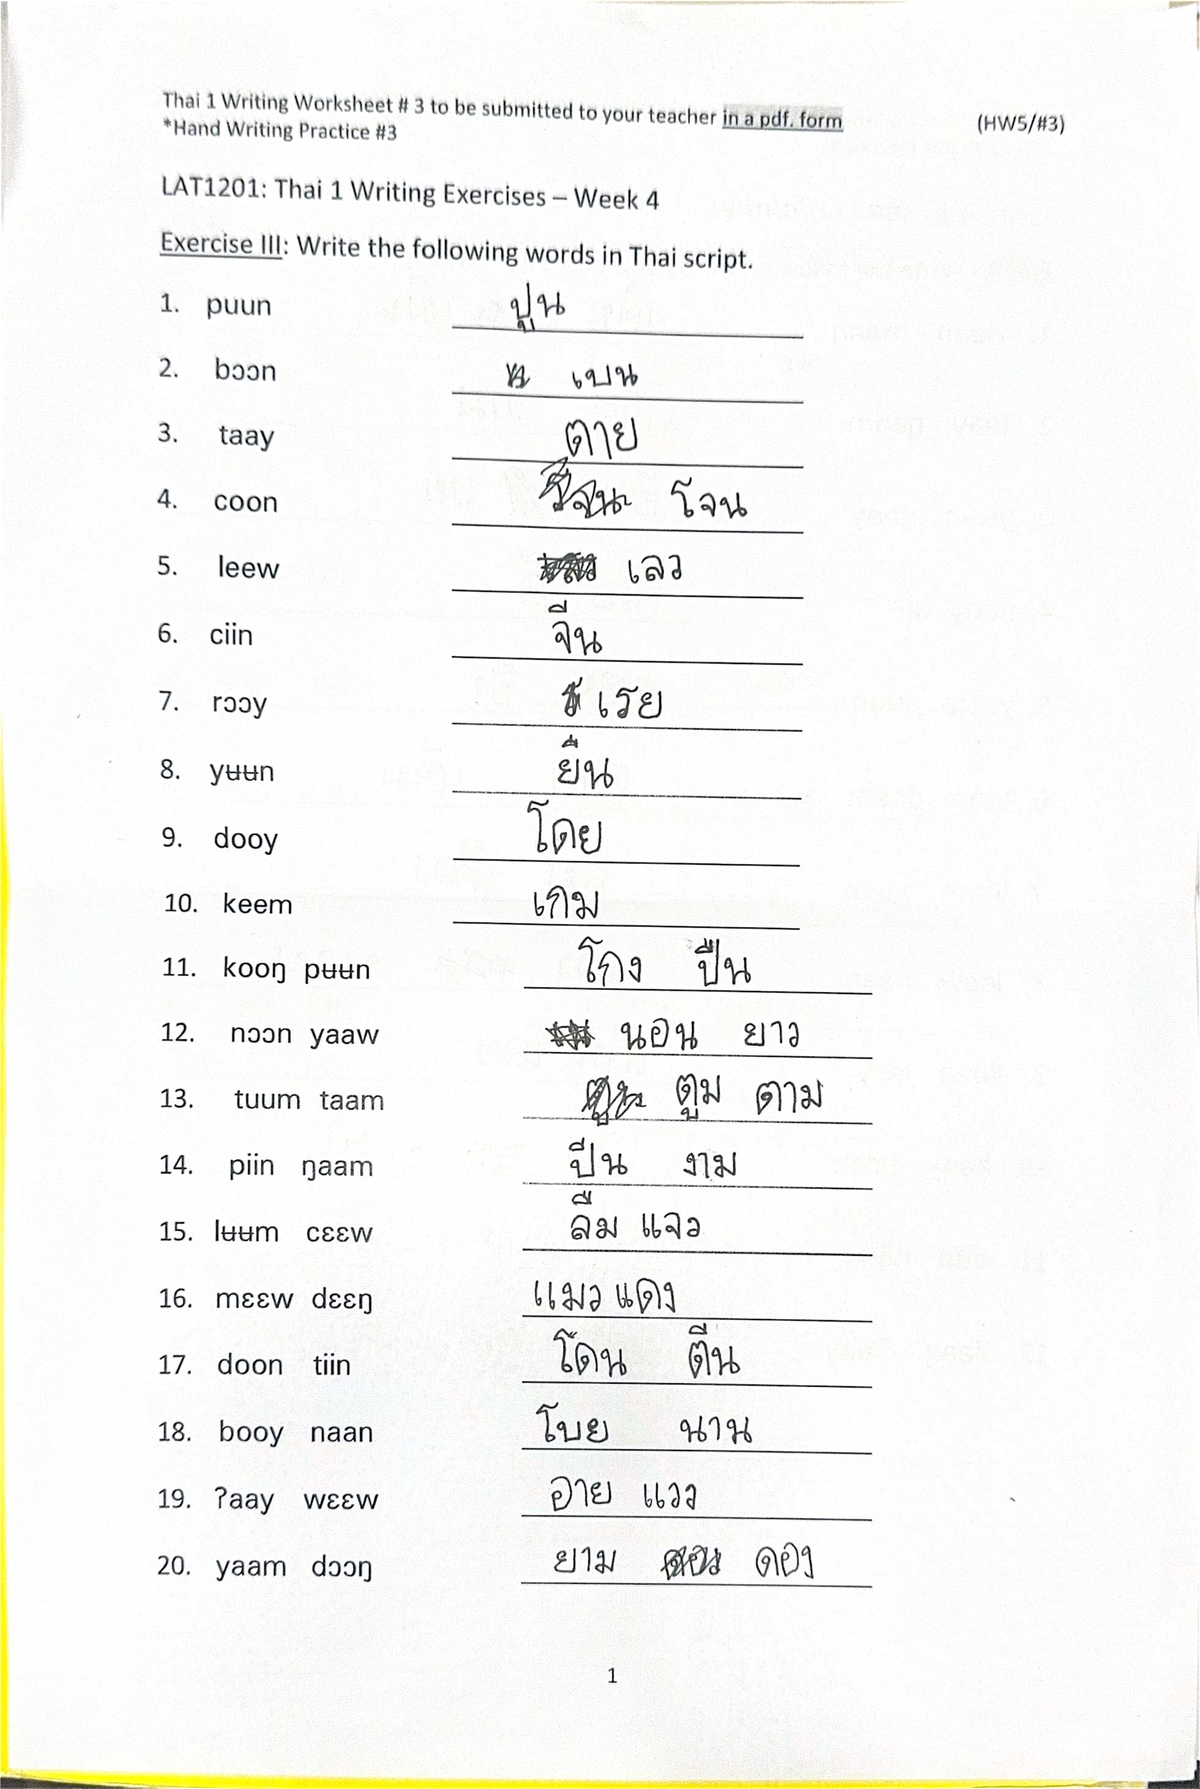 Thai 1 Writing Worksheet # 3 to be submitted to your teacher in a pdf. form (HW5/#3)
*Hand Writing Practice #3
LAT1201: Thai 1 Writing Exercises – Week 4
Exercise III: Write the following words in Thai script.
1. puun ปูน
2. bɔɔn เบน
3. taay ตาย
4. coon โจน
5. leew เลว
6. ciin จีน
7. rɔɔy เรย
8. yʉʉn ยืน
9. dooy โดย
10. keem เกม
11. kooŋ pʉʉn โกง ปืน
12. nɔɔn yaaw นอน ยาว
13. tuum taam ตูม ตาม
14. piin ŋaam ปีน งาม
15. lʉʉm cɛɛw ลืม แจว
16. mɛɛw dɛɛŋ แมว แดง
17. doon tiin โดน ตีน
18. booy naan โบย นาน
19. ʔaay wɛɛw อาย แวว
20. yaam dɔɔŋ ยาม ดอง
1